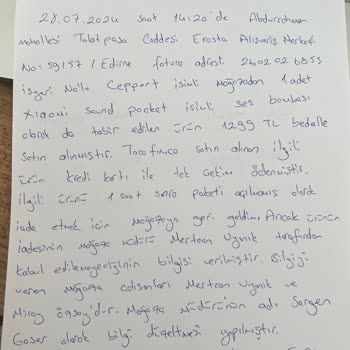 28.07.2024 saat 14:20'de Abdurrahman
mahallesi Talatpaşa Caddesi Erasta Alışveriş Merkezi
No: 59157 / Edirne fatura adresli
işyeri Nolu Cepport isimli mağazadan 1 adet
Xiaomi sound pocket isimli ses bombası
olarak da tabir edilen ürün 1299 TL bedelle
satın alınmıştır. Tarafımca satın alınan ilgili
ürün kredi kartı ile tek çekim ödenmiştir.
ilgili ürünü 1 saat sonra paketi açılmamış olarak
iade etmek için mağazaya geri geldim. Ancak ürünün
iadesinin mağaza müdürü Mertcan Uyanık tarafından
kabul edilemeyeceğinin bilgisi verilmiştir. Bilgiyi
veren mağaza çalışanları Mertcan Uyanık ve
Miray Mağaza müdürünün adı Sergen
olarak bilgi düzeltmesi yapılmıştır.